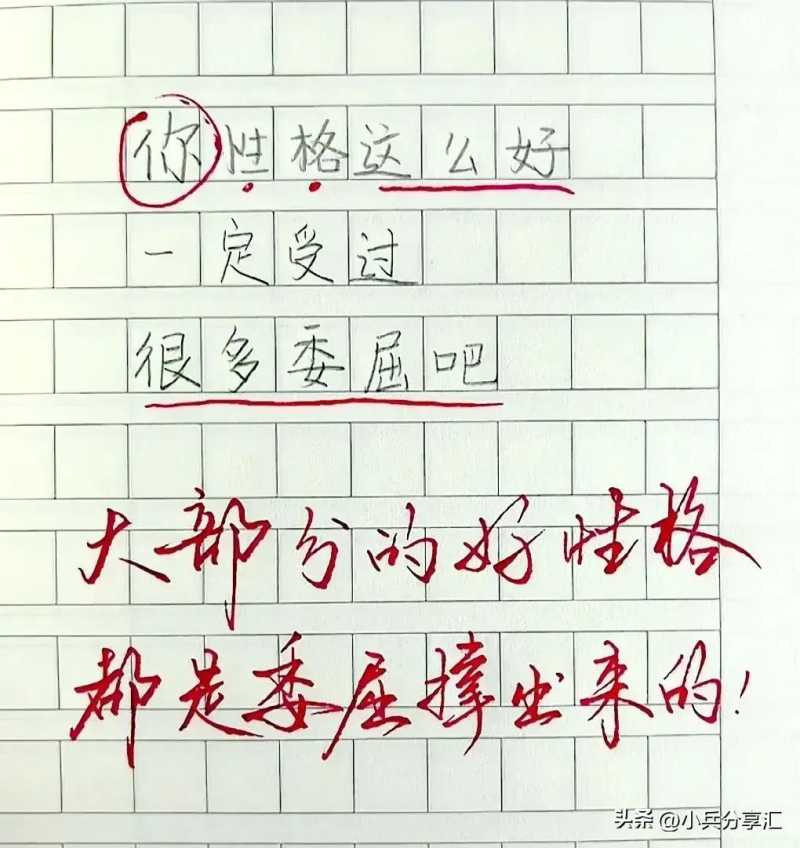 你性格这么好
一定受过
很多委屈吧
大部分的好性格
都是委屈撑出来的！
头条 @小兵分享汇